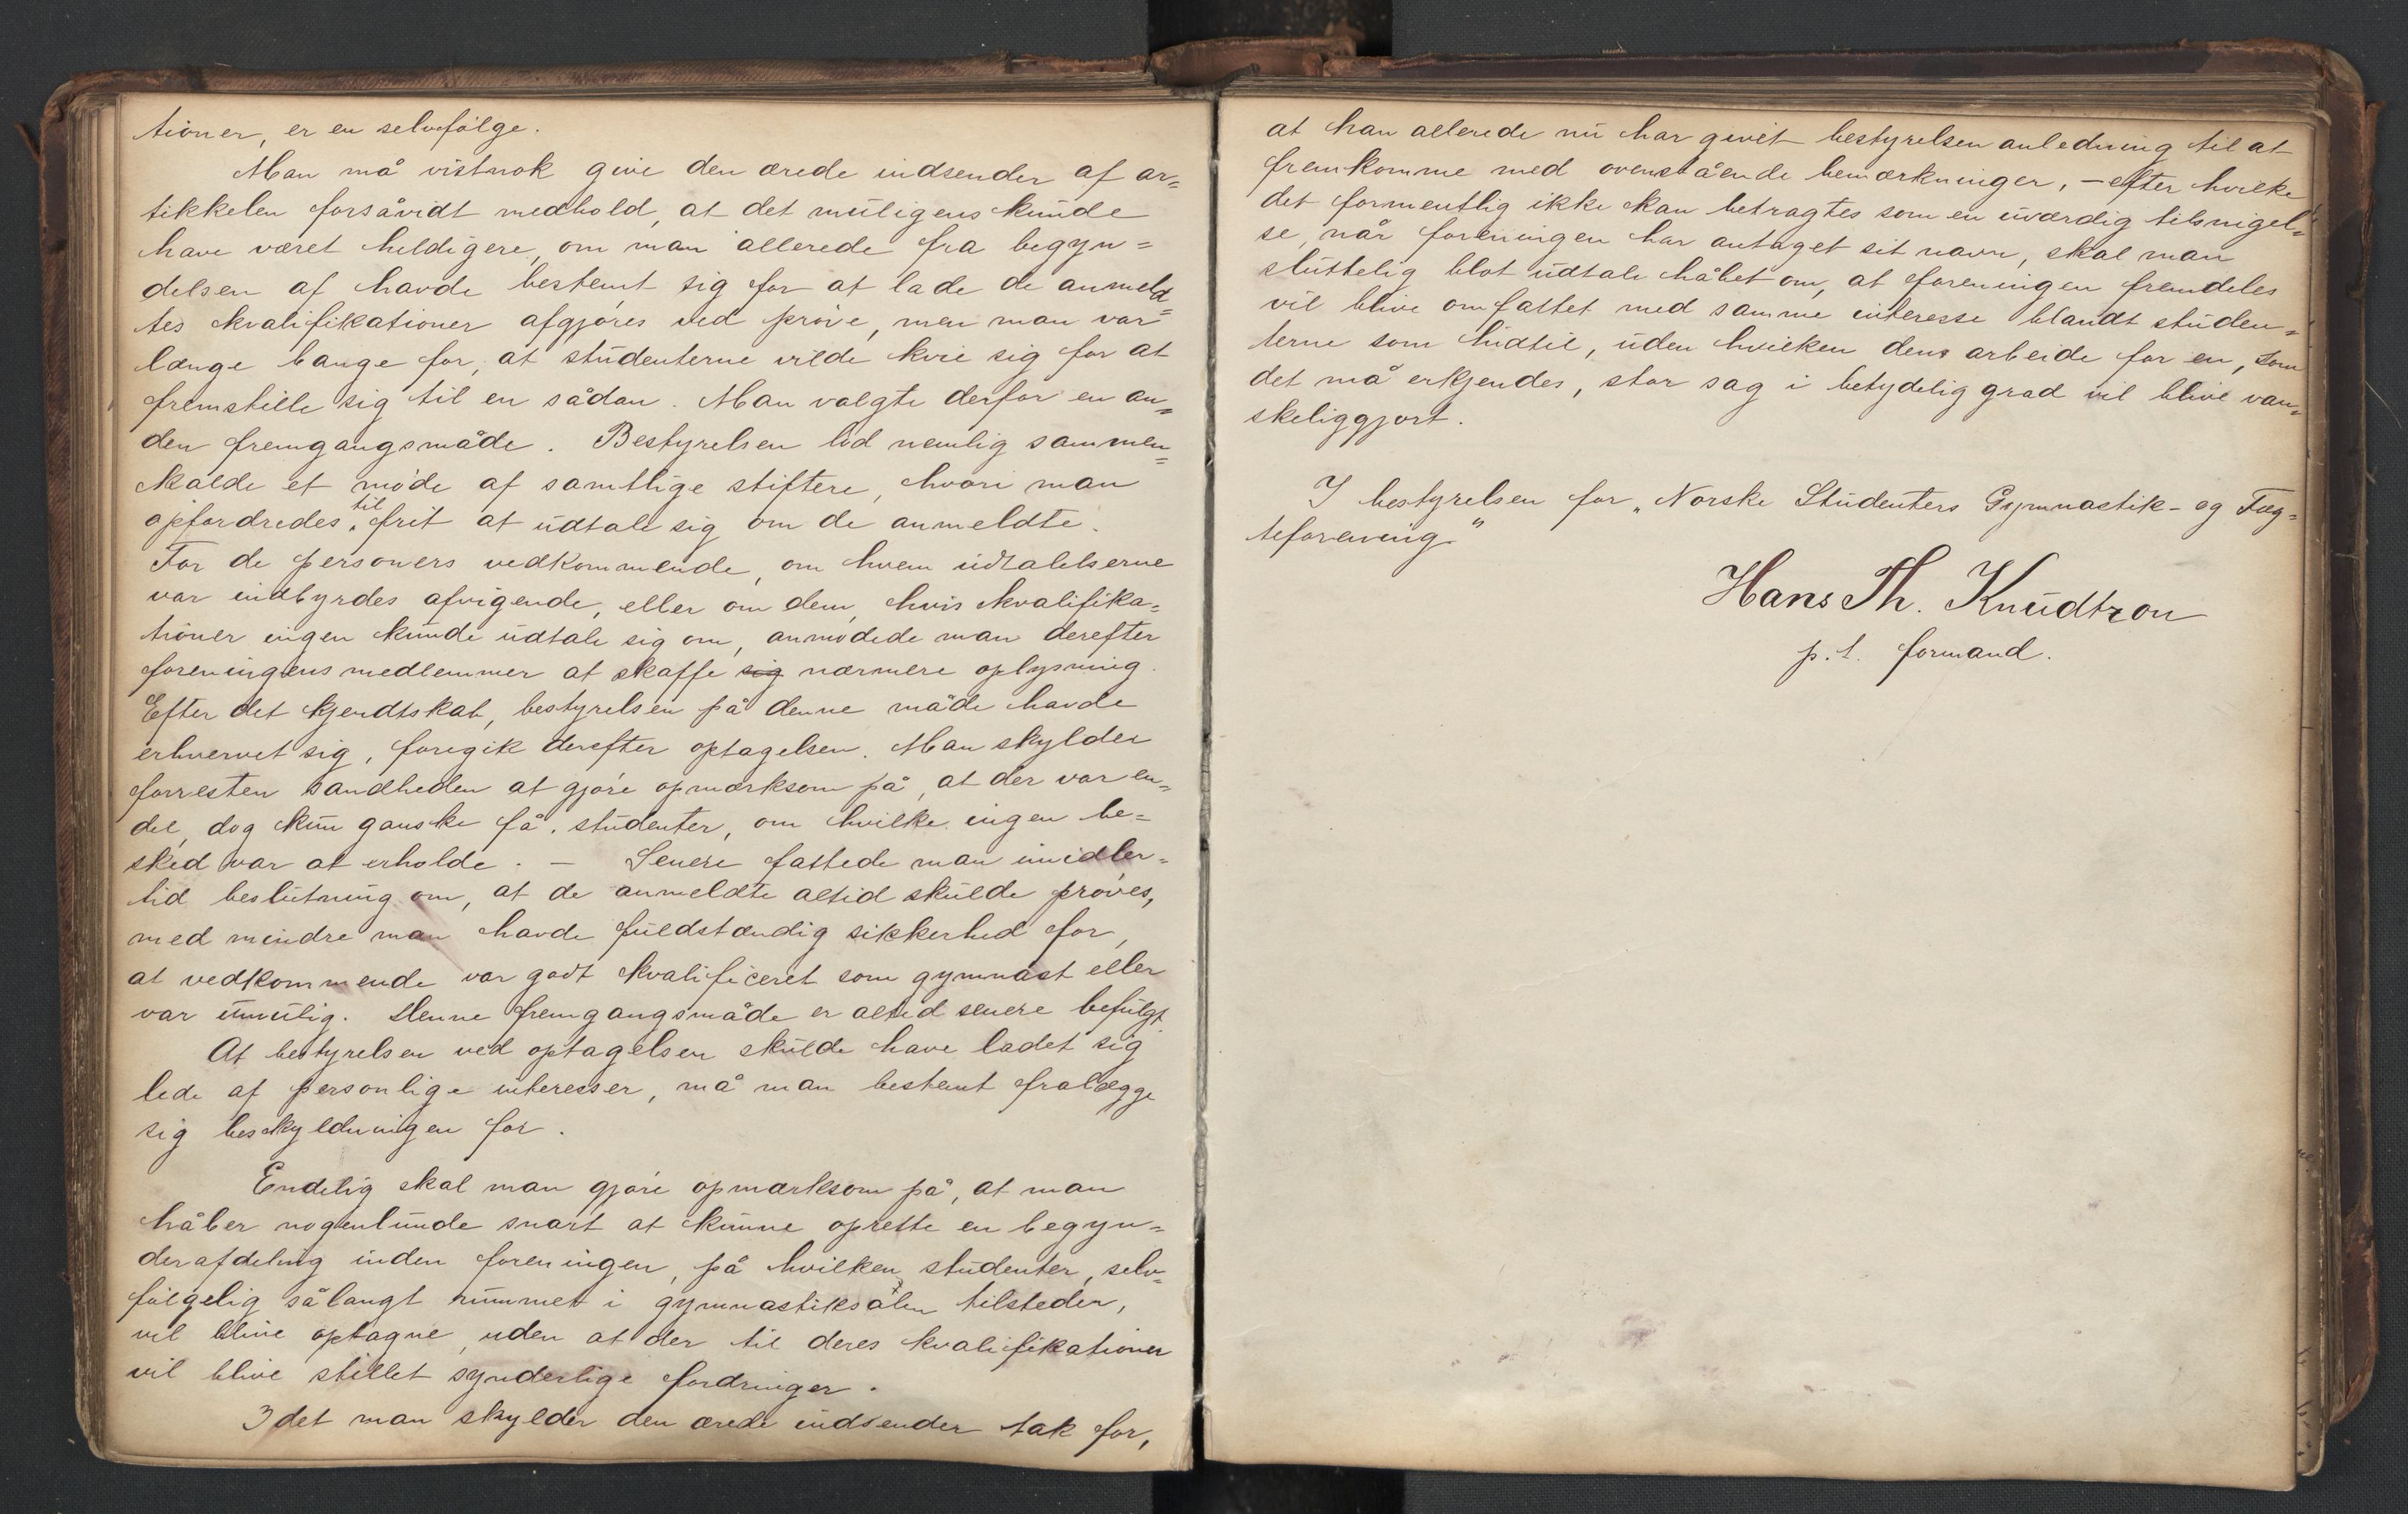 tioner, er en selvfølge.
Man må vistnok give den ærede indsender af ar=
tikkelen forsåvidt medhold, at det muligens kunde
have været heldigere, om man allerede fra begyn=
delsen af havde bestemt sig for at lade de anmeld=
tes kvalifikationer afgjøres ved prøve, men man var
længe bange for, at studenterne vilde kvie sig for at
fremstille sig til en sådan. Man valgte derfor en an=
den fremgangsmåde. Bestyrelsen lod nemlig sammen=
kalde et møde af samtlige stiftere, hvori man
opfordredes til frit at udtale sig om de anmeldte.
For de personers vedkommende, om hvem udtalelserne
var indbyrdes afvigende, eller om dem, hvis kvalifika=
tioner ingen kunde udtale sig om, anmodede man derefter
foreningens medlemmer at skaffe sig nærmere oplysning.
Efter det kjendtskab, bestyrelsen på denne måde havde
erhvervet sig, foregik derefter optagelsen. Man skylder
forresten sandheden at gjøre opmærksom på, at der var en=
del, dog kun ganske få, studenter, om hvilke ingen be=
sked var at erholde. — Senere fattede man imidler=
tid beslutning om, at de anmeldte altid skulde prøves,
med mindre man havde fuldstændig sikkerhed for,
at vedkommende var godt kvalificeret som gymnast eller
var umulig. Denne fremgangsmåde er altid senere befulgt.
At bestyrelsen ved optagelsen skulde have ladet sig
lede af personlige interesser, må man bestemt fralægge
sig beskyldningen for.
Endelig skal man gjøre opmærksom på, at man
håber nogenlunde snart at kunne oprette en begyn=
derafdeling inden foreningen, på hvilken studenter, selv=
følgelig sålangt rummet i gymnastiksalen tilsteder,
vil blive optagne, uden at der til deres kvalifikationer
vil blive stillet synderlige fordringer.
Idet man skylder den ærede indsender tak for,
at han allerede nu har givet bestyrelsen anledning til at
fremkomme med ovenstående bemærkninger, — efter hvilke
det formentlig ikke kan betragtes som en uværdig tilsnigel=
se, når foreningen har antaget sit navn, skal man
sluttelig blot udtale håbet om, at foreningen fremdeles
vil blive omfattet med samme interesse blandt studen=
terne som hidtil, uden hvilken dens arbeide for en, som
det må erkjendes, stor sag i betydelig grad vil blive van=
skeliggjort.
I bestyrelsen for „Norske Studenters Gymnastik- og Fæg=
teforening“
Hans Th. Knudtzon
p. t. formand.